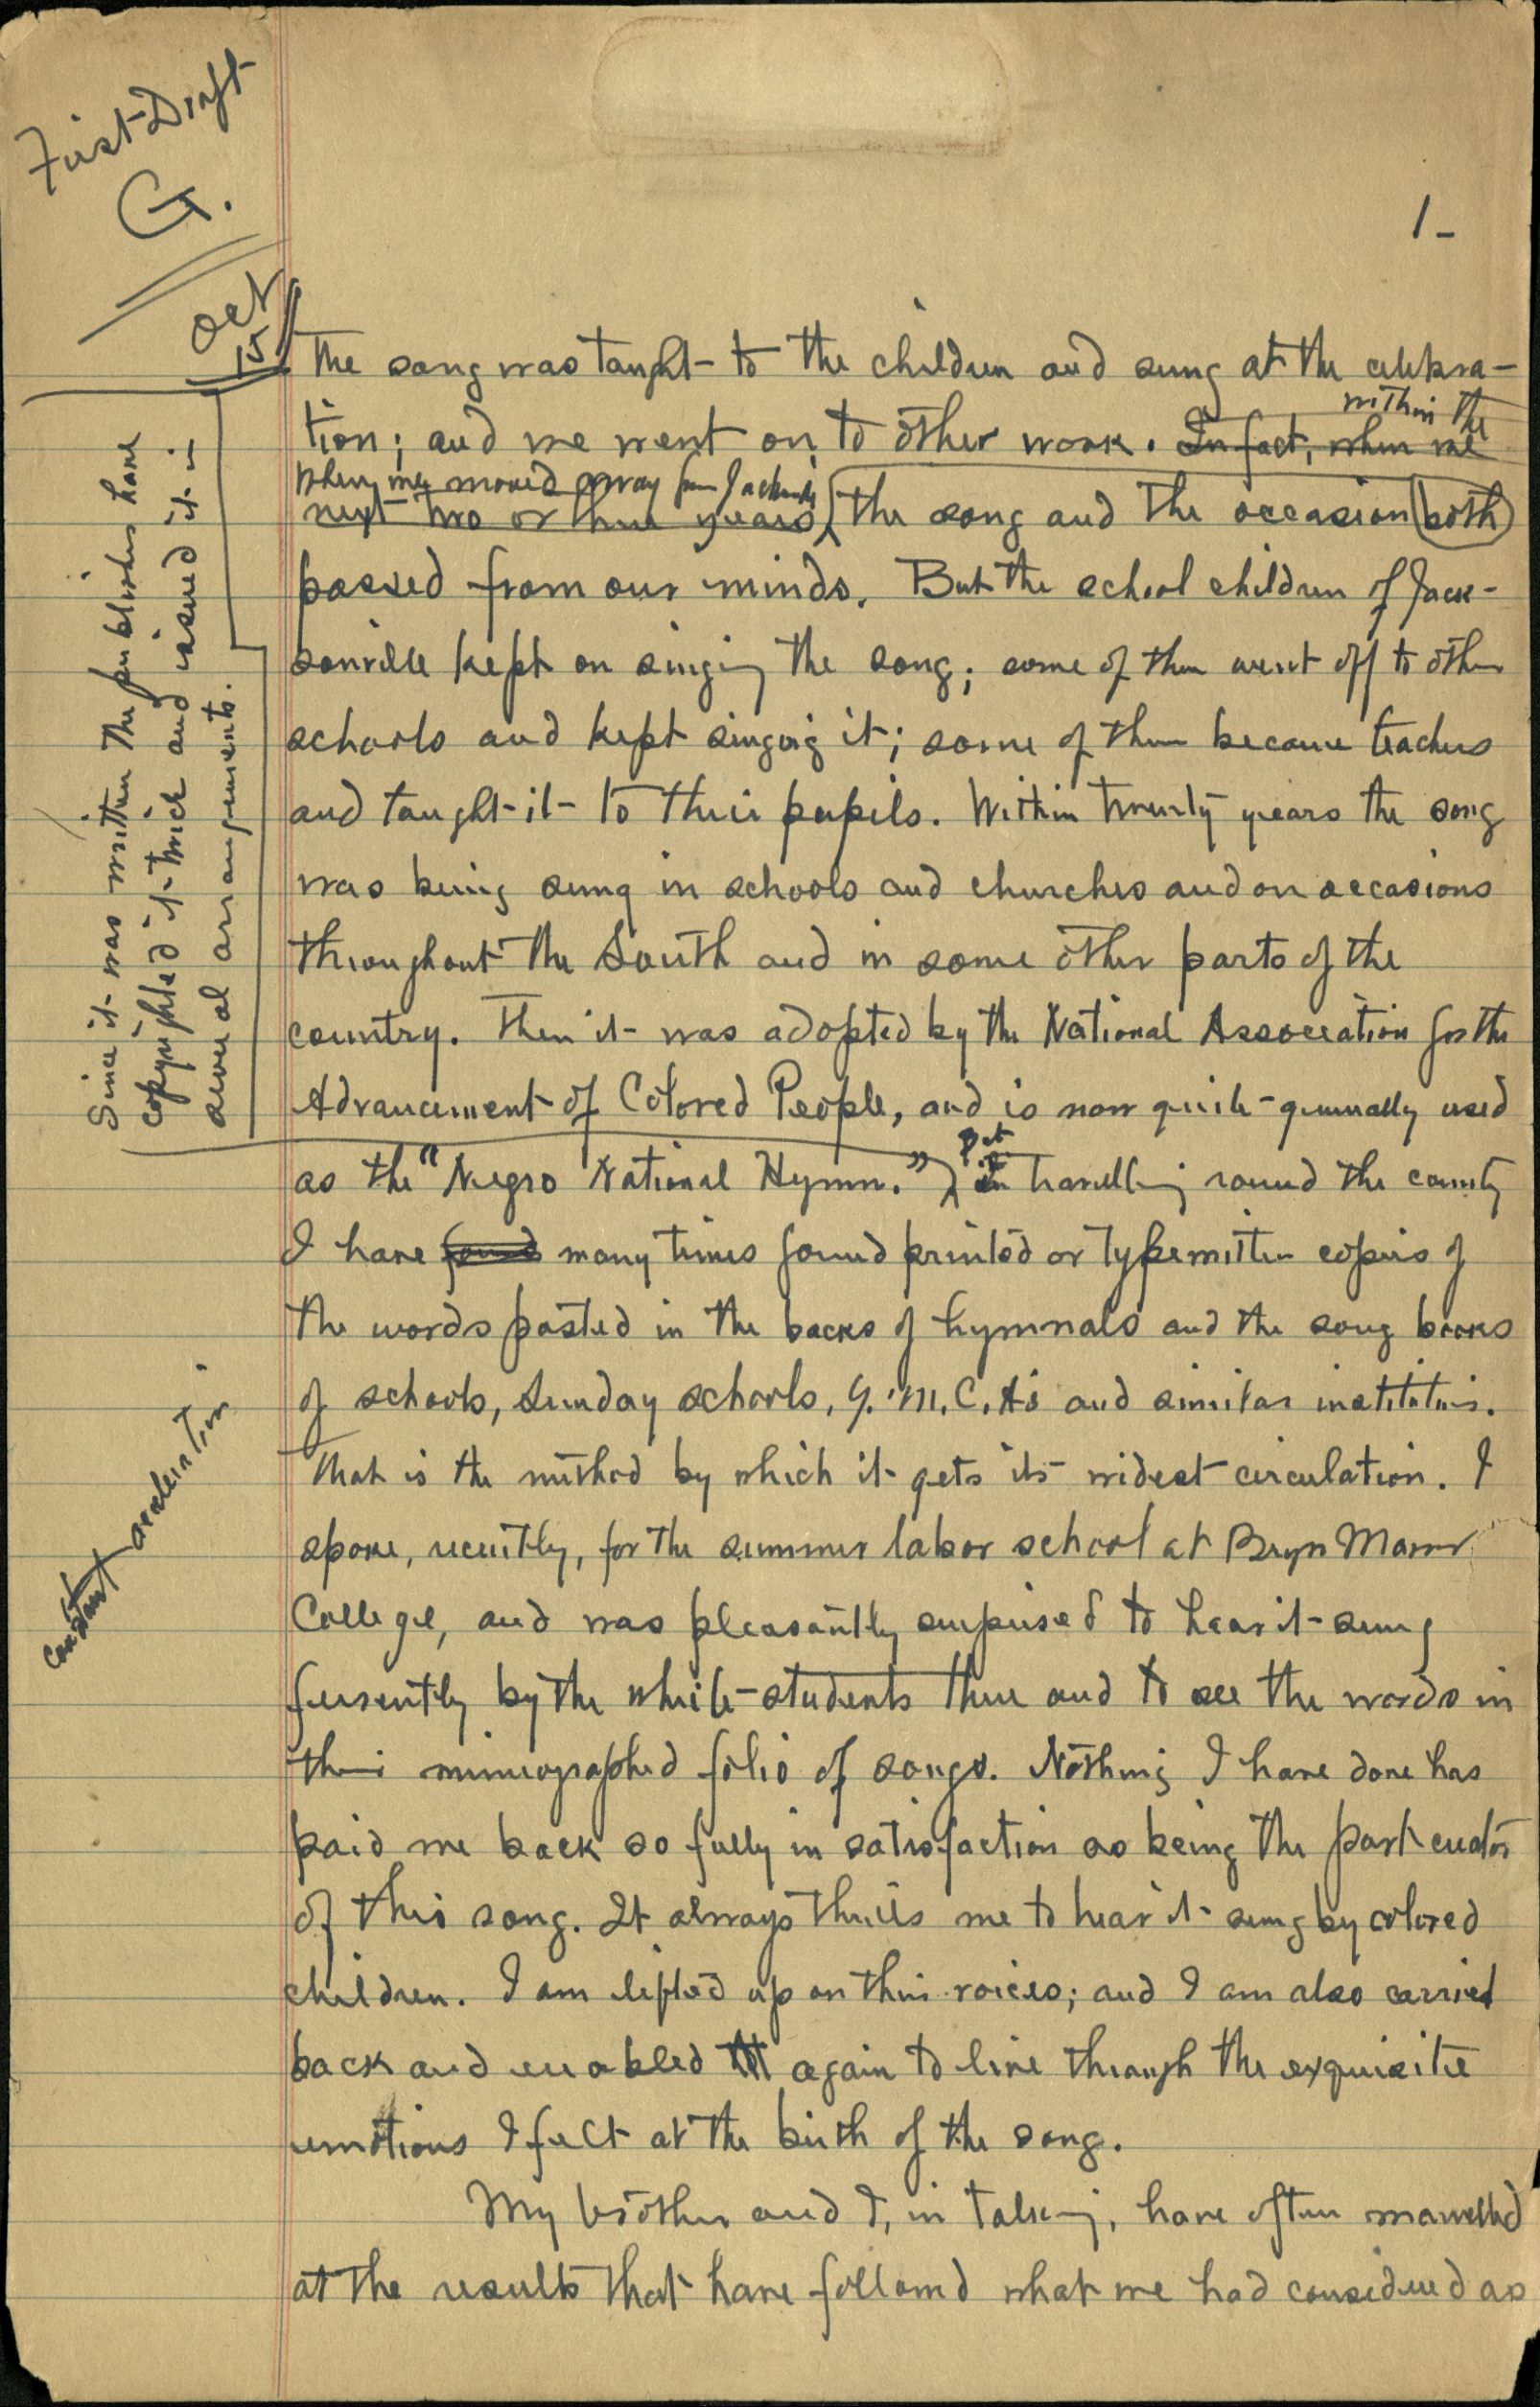 First Draft
G.
1-
Oct
15
The song was taught to the children and sung at the celebra-
within the
tion; and we went on to other work. In fact, when we
when we moved away from Jacksonville
next two or three years, the song and the occasion both
passed from our minds. But the school children of Jack-
sonville kept on singing the song; some of them went off to other
schools and kept singing it; some of them became teachers
and taught it to their pupils. Within twenty years the song
was being sung in schools and churches and on occasions
throughout the South and in some other parts of the
country. Then it was adopted by the National Association for the
Advancement of Colored People, and is now quite generally used
as the "Negro National Hymn." in travelling round the country
I have found many times found printed or typewritten copies of
the words pasted in the backs of hymnals and the song books
of schools, Sunday schools, Y.M.C.A's and similar institutions.
That is the method by which it gets its widest circulation. I
spoke, recently, for the summer labor school at Bryn Mawr
College, and was pleasantly surprised to hear it sung
fervently by the white students there and to see the words in
their mimeographed folio of songs. Nothing I have done has
paid me back so fully in satisfaction as being the part creator
of this song. It always thrills me to hear it sung by colored
children. I am lifted up on their voices; and I am also carried
back and enabled again to live through the exquisite
emotions I felt at the birth of the song.
My brother and I, in talking, have often marvelled
at the results that have followed what we had considered as
Since it was written the publishers have
copyrighted it twice and issued it in
several arrangements.
constant acceleration